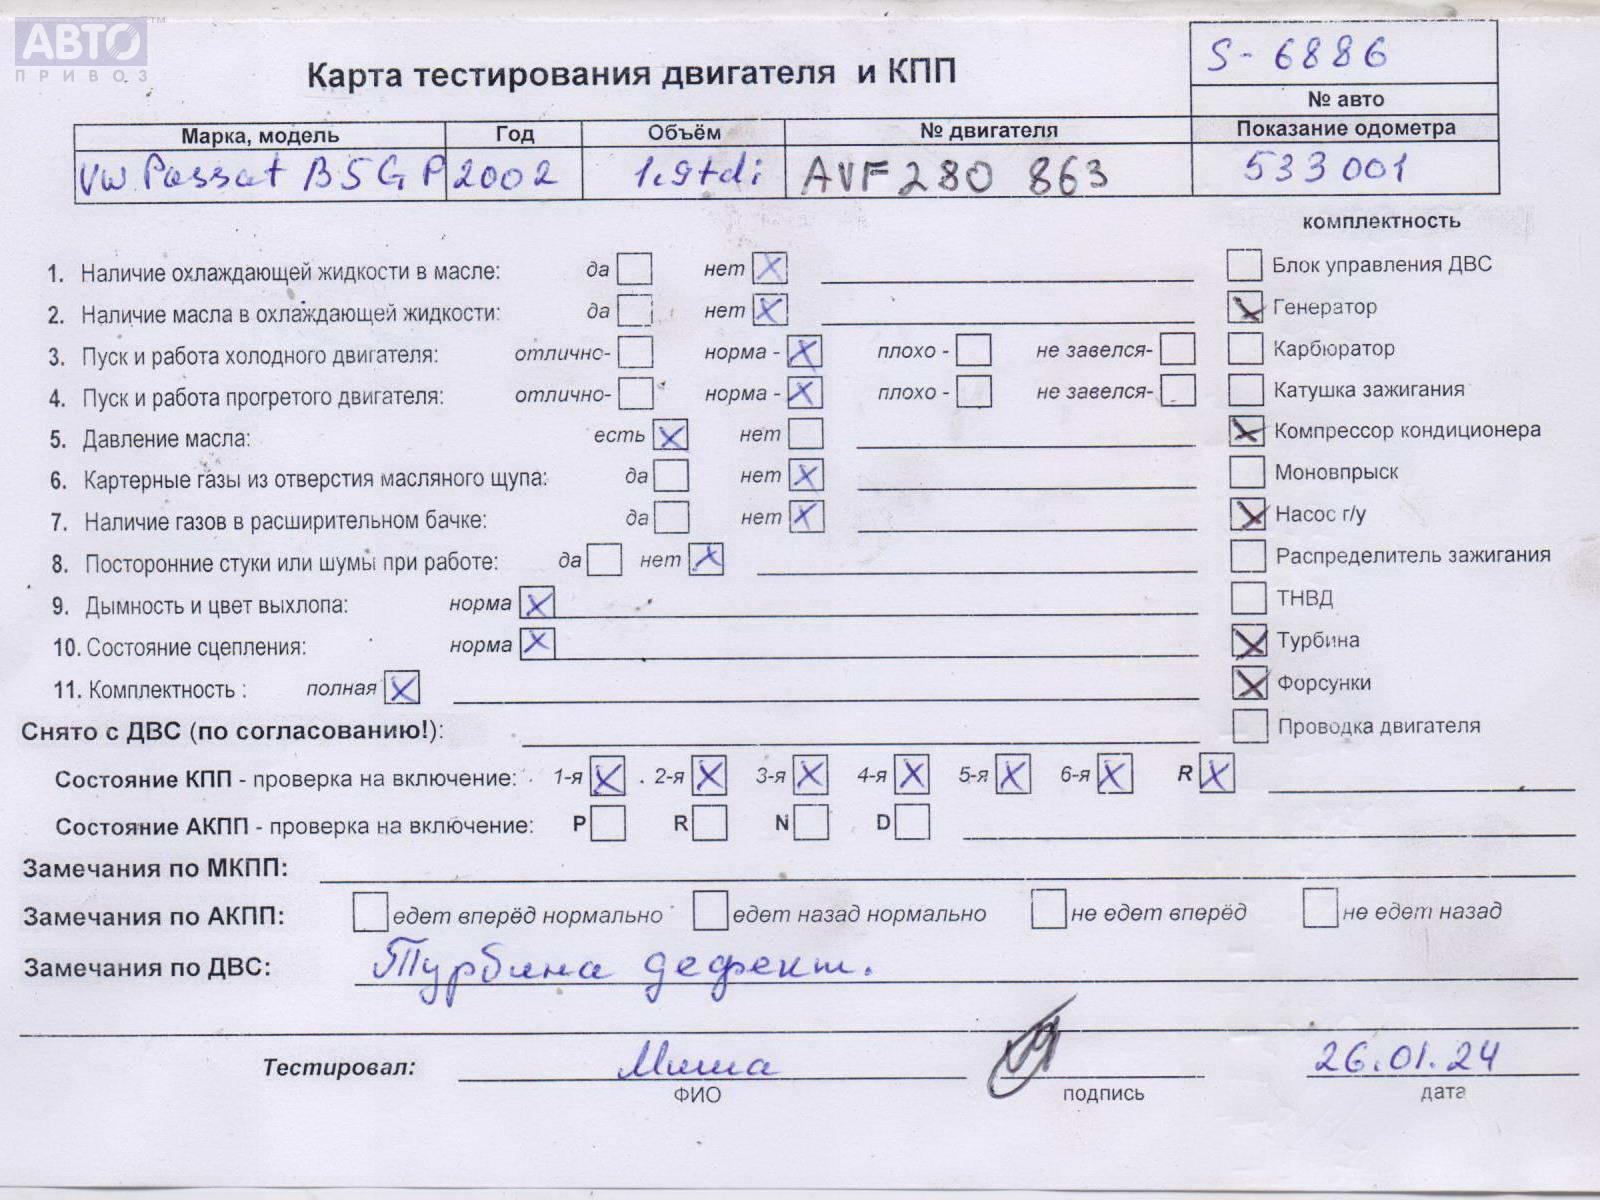 АВТО ™
ПРИВОЗ
S-6886
Карта тестирования двигателя и КПП
№ авто
Марка, модель Год Объём № двигателя Показание одометра
VW Passat B5GP 2002 1.9tdi AVF280 863 533001
комплектность
1. Наличие охлаждающей жидкости в масле: да нет X Блок управления ДВС
2. Наличие масла в охлаждающей жидкости: да нет X X Генератор
3. Пуск и работа холодного двигателя: отлично- норма - X плохо - не завелся- Карбюратор
4. Пуск и работа прогретого двигателя: отлично- норма - X плохо - не завелся- Катушка зажигания
5. Давление масла: есть X нет X Компрессор кондиционера
6. Картерные газы из отверстия масляного щупа: да нет X Моновпрыск
7. Наличие газов в расширительном бачке: да нет X X Насос г/у
8. Посторонние стуки или шумы при работе: да нет X Распределитель зажигания
9. Дымность и цвет выхлопа: норма X ТНВД
10. Состояние сцепления: норма X X Турбина
11. Комплектность : полная X X Форсунки
Снято с ДВС (по согласованию!): Проводка двигателя
Состояние КПП - проверка на включение: 1-я X 2-я X 3-я X 4-я X 5-я X 6-я X R X
Состояние АКПП - проверка на включение: P R N D
Замечания по МКПП:
Замечания по АКПП: едет вперёд нормально едет назад нормально не едет вперёд не едет назад
Замечания по ДВС: Турбина дефект.
Тестировал: Миша 26.01.24
ФИО подпись дата